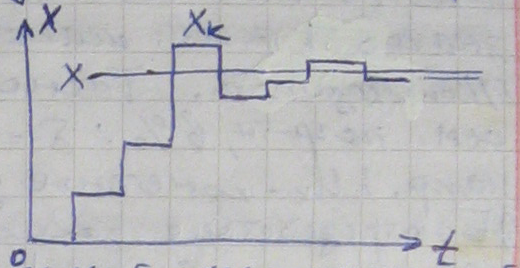 X
Xк
X
0
t